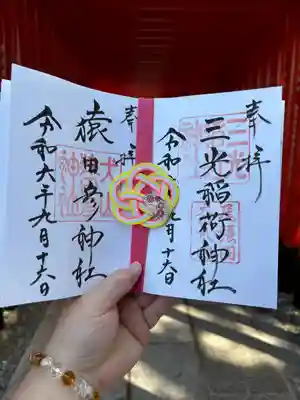 奉拝
三光稲荷神社
令和六年九月十六日
奉拝
猿田彦神社
令和六年九月十六日